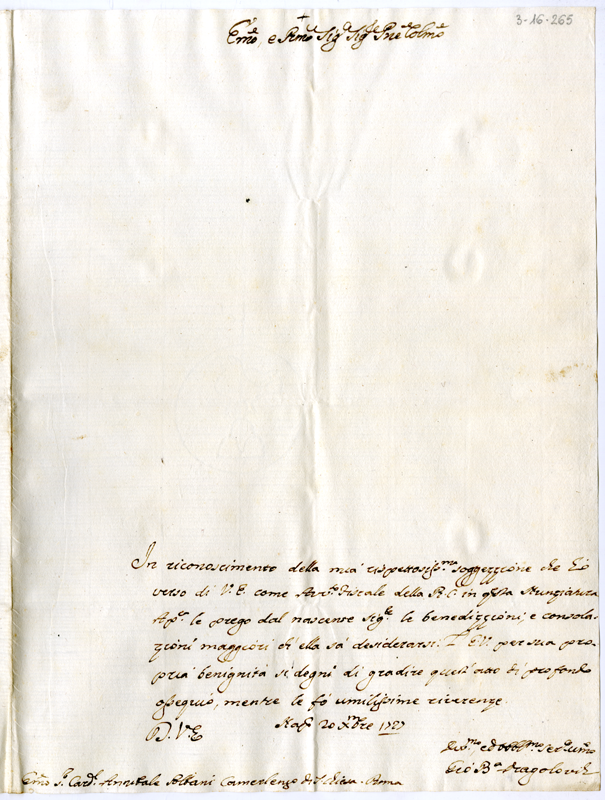 3-16-265
Emo, e Rmo Sigr Sigr Pne Colmo
In riconoscimento della mia rispettosissma soggezzione che hò
verso di V. E. come Avvto Fiscale della R. C. in qsta Nunziatura
Apca le prego dal nascente Sigre le benedizzioni, e consola-
zzioni maggiori ch'ella sà desiderarsi. L'E.V. per sua pro-
pria benignità si degni di gradire quest'atto di profondo
ossequio, mentre le fò umilissime riverenze.
D. V. E.
Nap. 20 Xmbre 1727
Devmo ed obblmo serv umo
Gio Ba Dragolovich
Emo Sr Cardl Annibale Albani Camerlengo di S. Chiesa. Roma